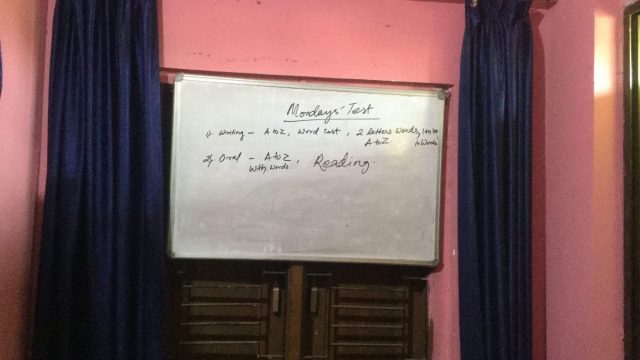 Mondays' Test
1). Writing - A to Z, Word Test, 2 letters words, 1 to 100
A to Z in words
2). Oral - A to Z, Reading.
With words